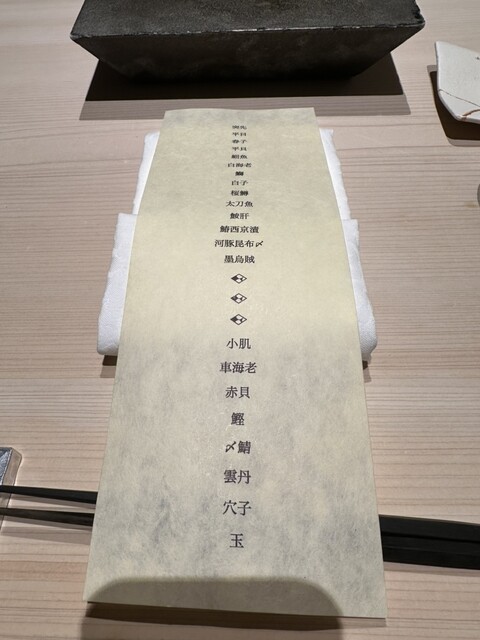 突先
平目
春子
平貝
鮟魚
白海老
鰤
白子
桜鱒
太刀魚
鮟肝
鰆西京漬
河豚昆布〆
墨烏賊
小肌
車海老
赤貝
鰹
〆鯖
雲丹
穴子
玉